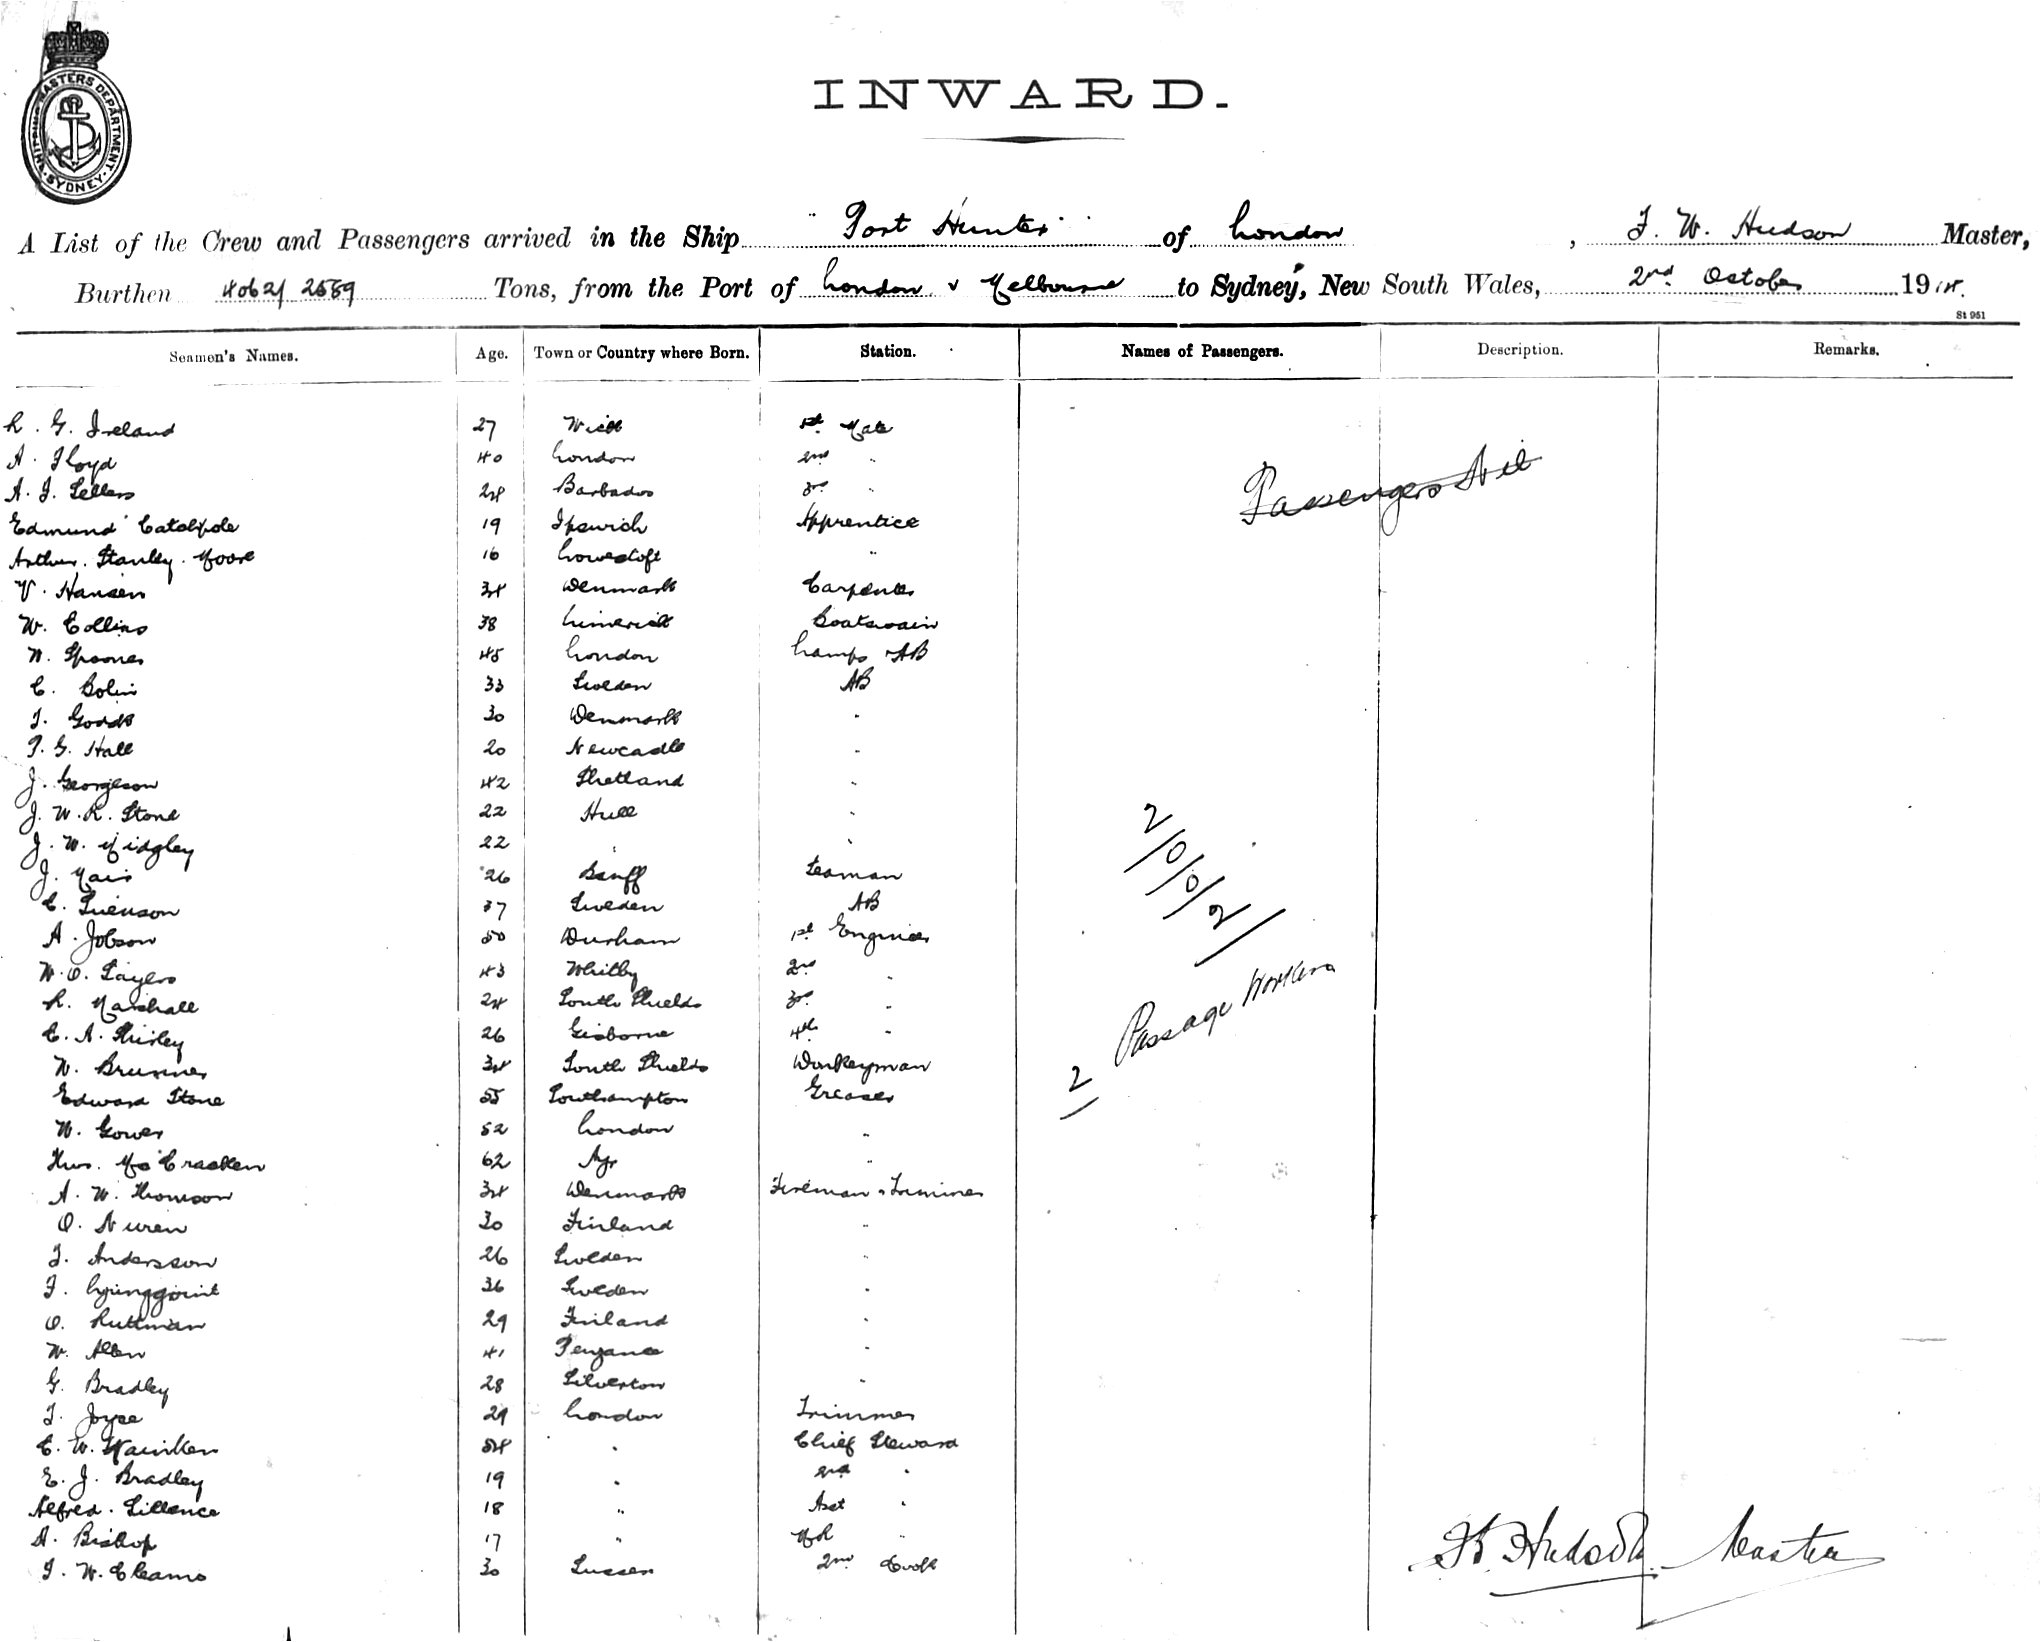 SHIPPING MASTERS DEPARTMENT. SYDNEY.
INWARD.
A List of the Crew and Passengers arrived in the Ship "Port Hunter" of London, F. W. Hudson Master,
Burthen 4062/2589 Tons, from the Port of London & Melbourne to Sydney, New South Wales, 2nd October 1914.
St 951
Seamen's Names. Age. Town or Country where Born. Station. Names of Passengers. Description. Remarks.
R. G. Ireland 27 Wick 1st Mate
A. Floyd 40 London 2nd "
A. J. Sellers 24 Barbados 3rd "
Passengers Nil
Edmund 19 Ipswich Apprentice
Arthur Stanley Moore 16 Lowestoft "
V. Hansen 34 Denmark Carpenter
W. Collins 38 Limerick Boatswain
W. Spooner 45 London Lamps AB
C. Bolin 33 Sweden AB
30 Denmark "
T. G. Hall 20 Newcastle "
J. Georgeson 42 Shetland "
J. W. R. Stone 22 Hull "
J. W. Midgley 22 " "
J. Mair 26 Banff Seaman
2/0/0/2/
C. Svenson 37 Sweden AB
A. Jobson 50 Durham 1st Engineer
W. O. Sayers 43 Whitby 2nd "
R. Marshall 24 South Shields 3rd "
2 Passage Workers
C. A. Shirley 26 Gisborne 4th "
W. Brunner 34 South Shields Donkeyman
Edward Stone 55 Southampton Greaser
W. Gower 52 London "
Thos. McCracken 62 Ayr "
A. W. Thomson 34 Denmark Fireman & Trimmer
O. Nuren 30 Finland "
J. Andersson 26 Sweden "
F. 36 Sweden "
O. Ruttman 29 Finland "
W. Allen 41 Penzance "
G. Bradley 28 Silverton "
T. Joyce 29 London Trimmer
C. W. 54 " Chief Steward
E. J. Bradley 19 " 2nd "
Alfred Sillence 18 " Asst "
A. Bishop 17 " MR "
F. W. Cleams 30 Sussex 2nd Cook
F W Hudson Master